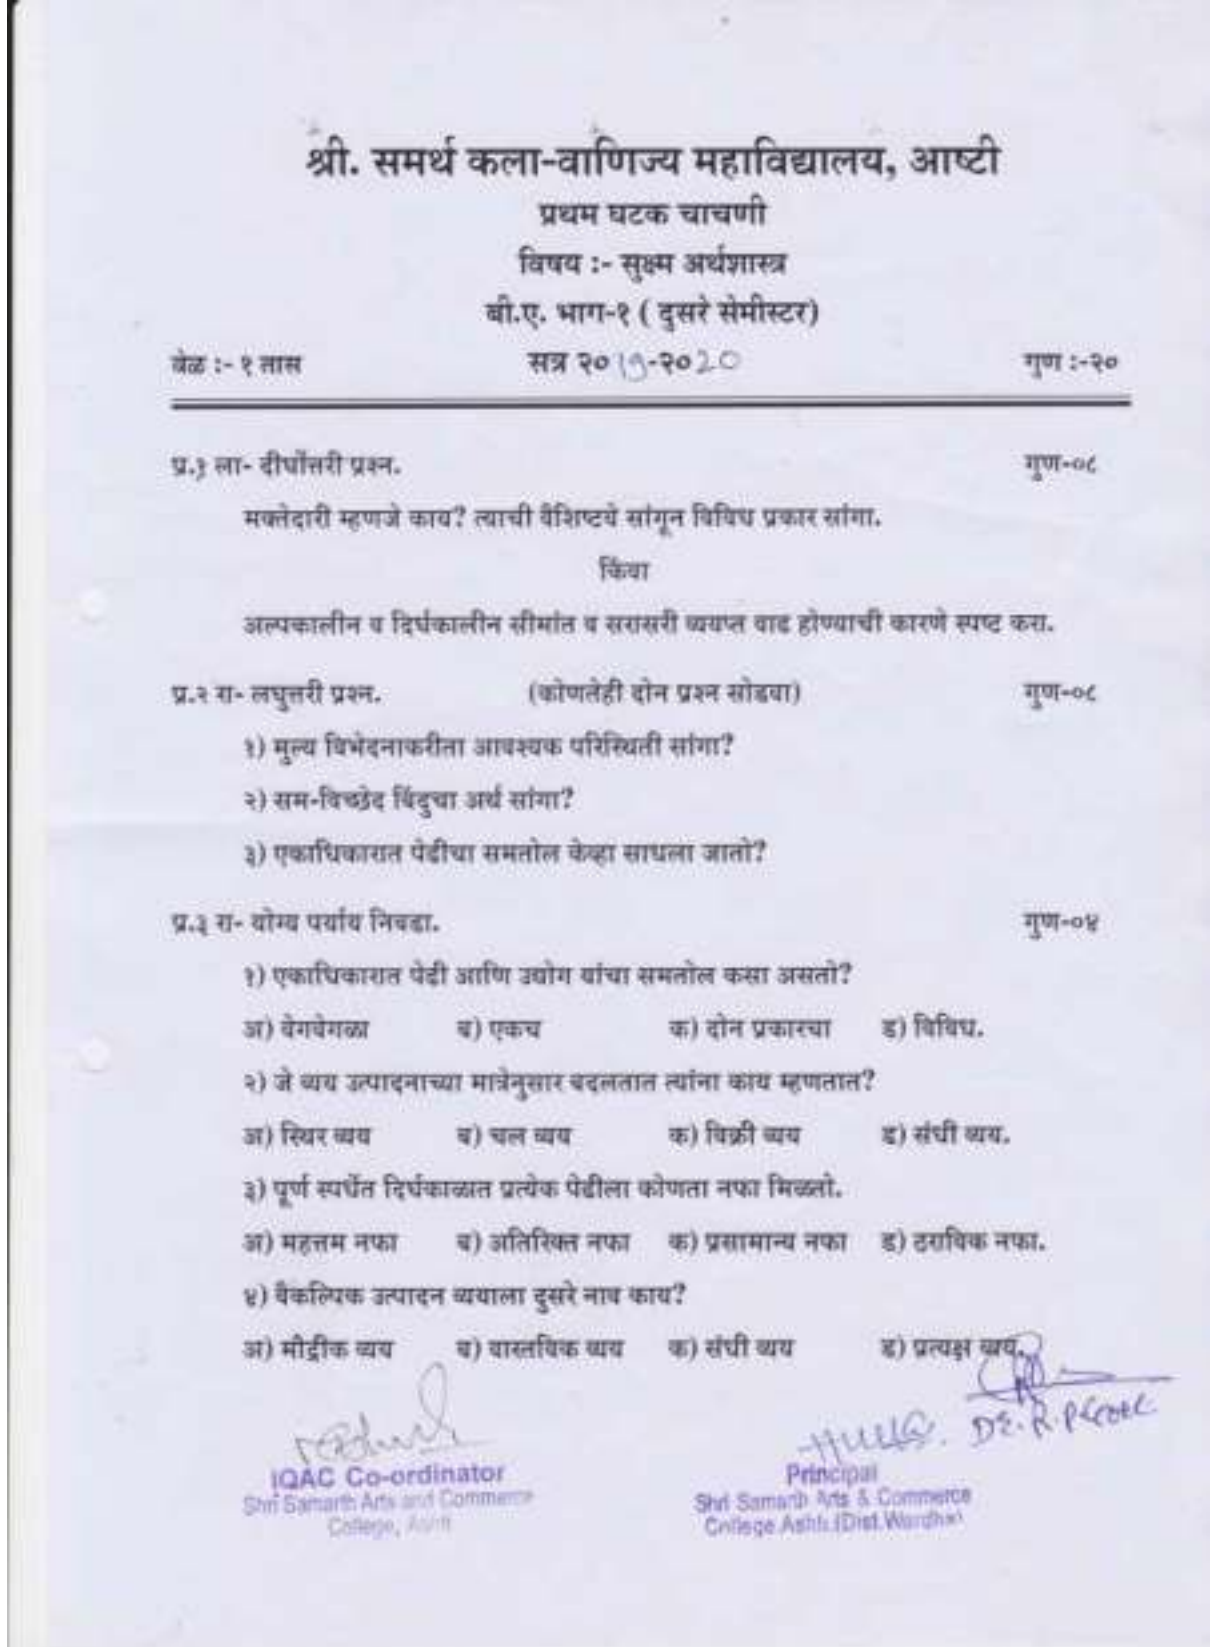 श्री. समर्थ कला-वाणिज्य महाविद्यालय, आष्टी
प्रथम घटक चाचणी
विषय :- सुक्ष्म अर्थशास्त्र
बी.ए. भाग-१ ( दुसरे सेमीस्टर)
वेळ :- १ तास सत्र २०19-२०20 गुण :-२०
प्र.१ ला- दीर्घोत्तरी प्रश्न. गुण-०८
मक्तेदारी म्हणजे काय? त्याची वैशिष्टये सांगून विविध प्रकार सांगा.
किंवा
अल्पकालीन व दिर्घकालीन सीमांत व सरासरी व्ययात वाढ होण्याची कारणे स्पष्ट करा.
प्र.२ रा- लघुत्तरी प्रश्न. (कोणतेही दोन प्रश्न सोडवा) गुण-०८
१) मुल्य विभेदनाकरीता आवश्यक परिस्थिती सांगा?
२) सम-विच्छेद बिंदुचा अर्थ सांगा?
३) एकाधिकारात पेढीचा समतोल केव्हा साधला जातो?
प्र.३ रा- योग्य पर्याय निवडा. गुण-०४
१) एकाधिकारात पेढी आणि उद्योग यांचा समतोल कसा असतो?
अ) वेगवेगळा ब) एकच क) दोन प्रकारचा ड) विविध.
२) जे व्यय उत्पादनाच्या मात्रेनुसार बदलतात त्यांना काय म्हणतात?
अ) स्थिर व्यय ब) चल व्यय क) विक्री व्यय ड) संधी व्यय.
३) पूर्ण स्पर्धेत दिर्घकाळात प्रत्येक पेढीला कोणता नफा मिळतो.
अ) महत्तम नफा ब) अतिरिक्त नफा क) प्रसामान्य नफा ड) ठराविक नफा.
४) वैकल्पिक उत्पादन व्ययाला दुसरे नाव काय?
अ) मौद्रीक व्यय ब) वास्तविक व्यय क) संधी व्यय ड) प्रत्यक्ष व्यय.
IQAC Co-ordinator
Shri Samarth Arts and Commerce
College, Ashti
Principal
Shri Samarth Arts & Commerce
College Ashti.(Dist.Wardha)